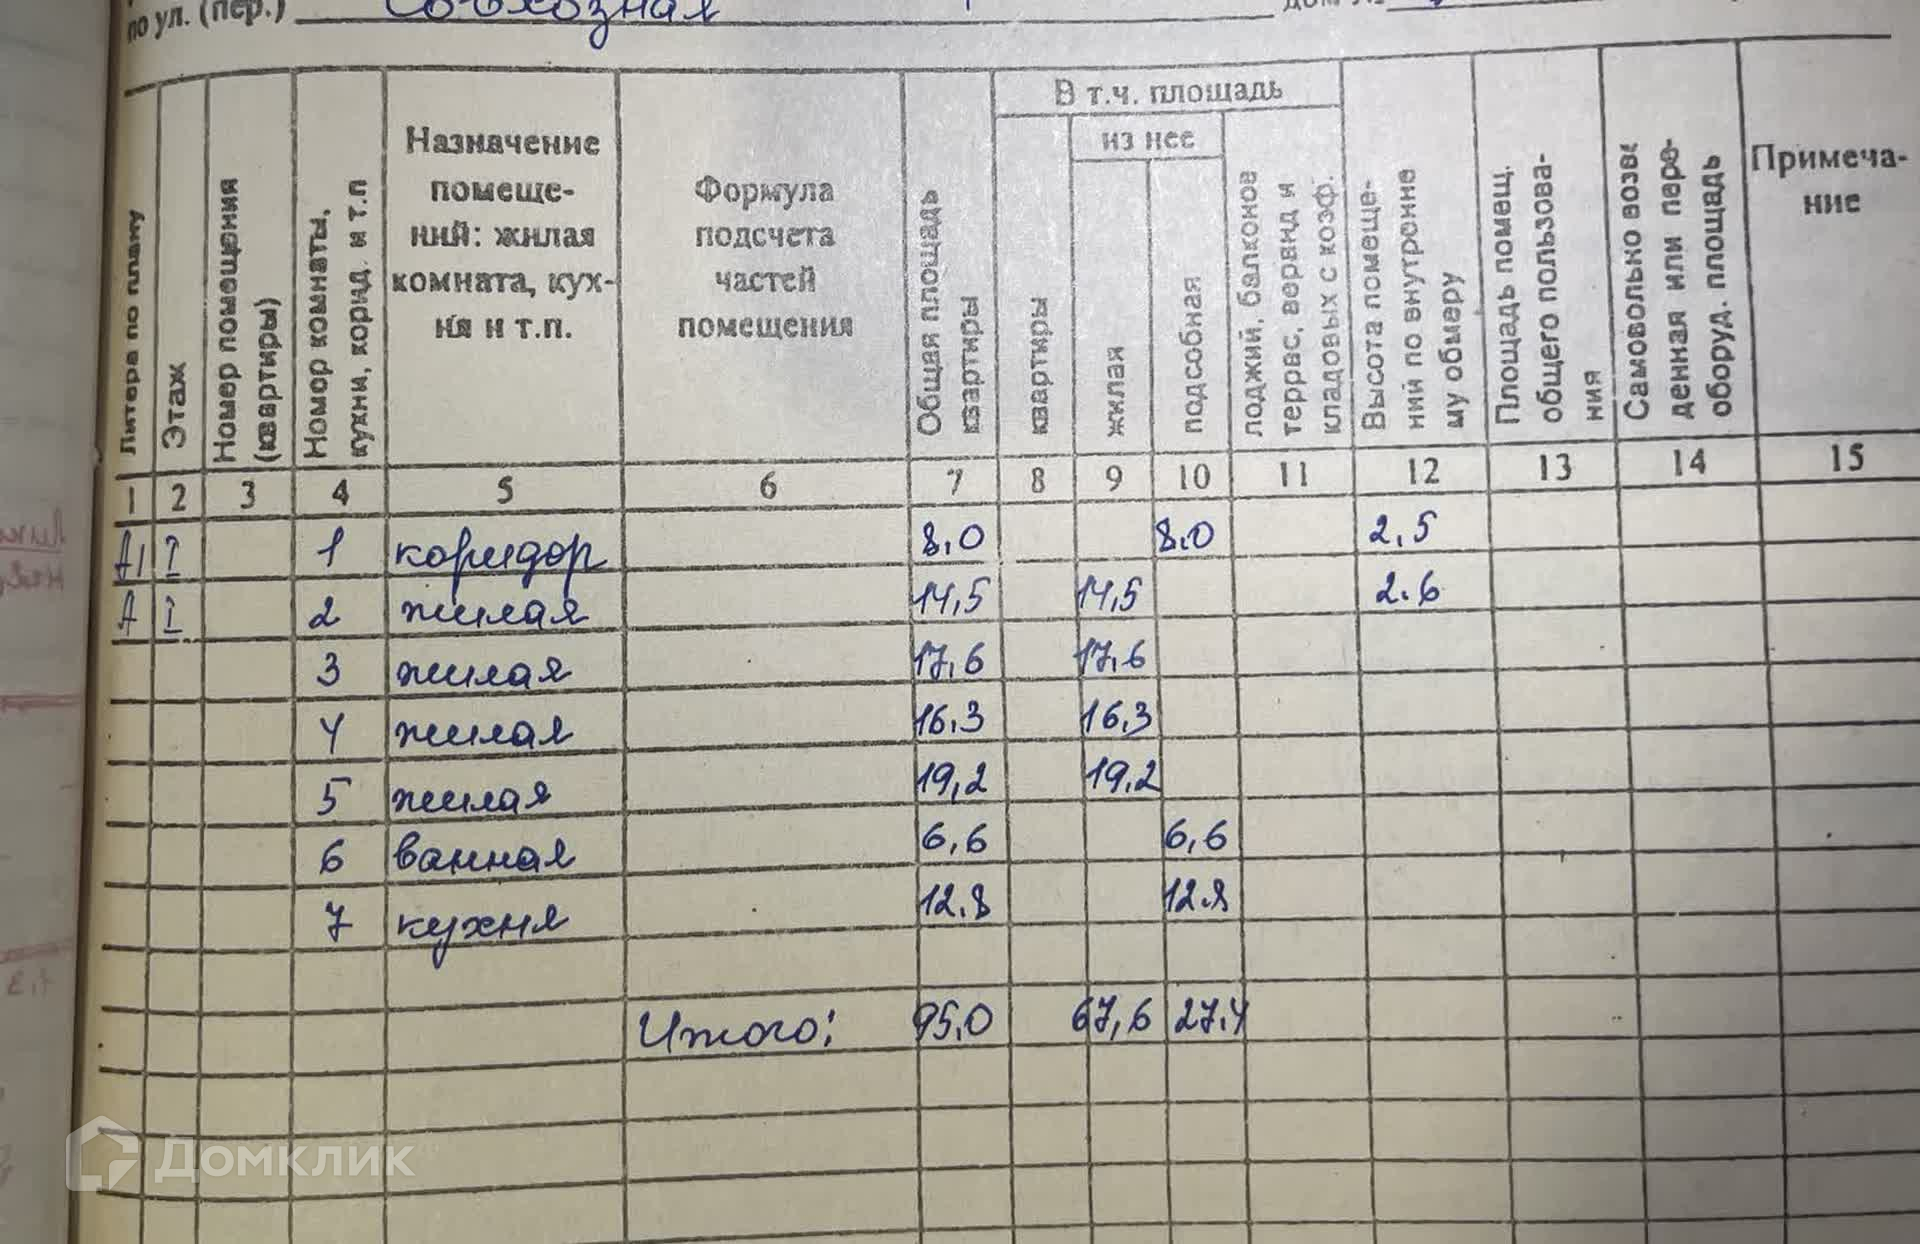 по ул. (пер.) Совхозная дом №
Литера по плану
Этаж
Номер помещения (квартиры)
Номор комнаты, кухни, корид. и т.п
Назначение помеще-
ний: жилая
комната, кух-
ня и т.п.
Формула
подсчета
частей
помещения
Общая площадь квартиры
В т.ч. площадь
из нее
квартиры
жилая
подсобная
лоджий, балконов террас, веранд и кладовых с коэф.
Высота помеще-
ний по внутренне
му обмеру
Площадь помещ.
общего пользова-
ния
Самовольно возве
денная или пере-
оборуд. площадь
Примеча-
ние
1 2 3 4 5 6 7 8 9 10 11 12 13 14 15
А1 I 1 коридор 8,0 8.0 2,5
А I 2 жилая 14,5 14,5 2.6
3 жилая 17,6 17,6
4 жилая 16,3 16,3
5 жилая 19,2 19,2
6 ванная 6,6 6,6
7 кухня 12.8 12.8
Итого: 95,0 67,6 27,4
Домклик